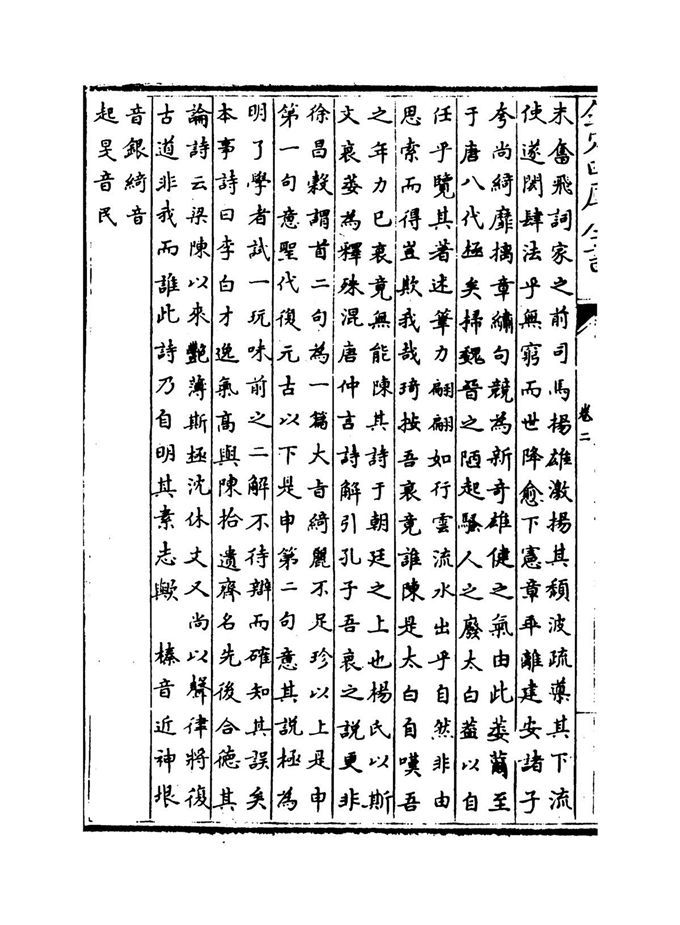 卷二
未奮飛詞家之前司馬楊雄激揚其頽波疏導其下流
使遂閎肆法乎無窮而世降愈下憲章乖離建安諸子
夸尚綺靡摛章繡句競為新奇雄健之氣由此萎薾至
于唐八代極矣掃魏晉之陋起騷人之廢太白葢以自
任乎覽其著述筆力翩翩如行雲流水出乎自然非由
思索而得豈欺我哉琦按吾衰竟誰陳是太白自嘆吾
之年力已衰竟無能陳其詩于朝廷之上也楊氏以斯
文衰萎為釋殊混唐仲言詩解引孔子吾衰之說更非
徐昌榖謂首二句為一篇大旨綺麗不足珍以上是申
第一句意聖代復元古以下是申第二句意其說極為
明了學者試一玩味前之二解不待辨而確知其誤矣
本事詩曰李白才逸氣高與陳拾遺齊名先後合德其
論詩云梁陳以來艷薄斯極沈休文又尚以聲律將復
古道非我而誰此詩乃自明其素志歟 榛音近神垠
音銀綺音
起旻音民